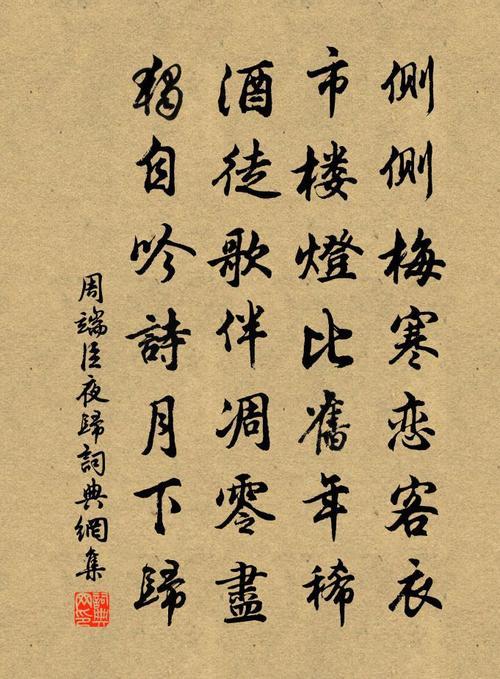 侧侧梅寒恋客衣
市楼燈比舊年稀
酒徒歌伴凋零盡
獨自吟詩月下歸
周端臣夜歸詞典網集
詞典网印